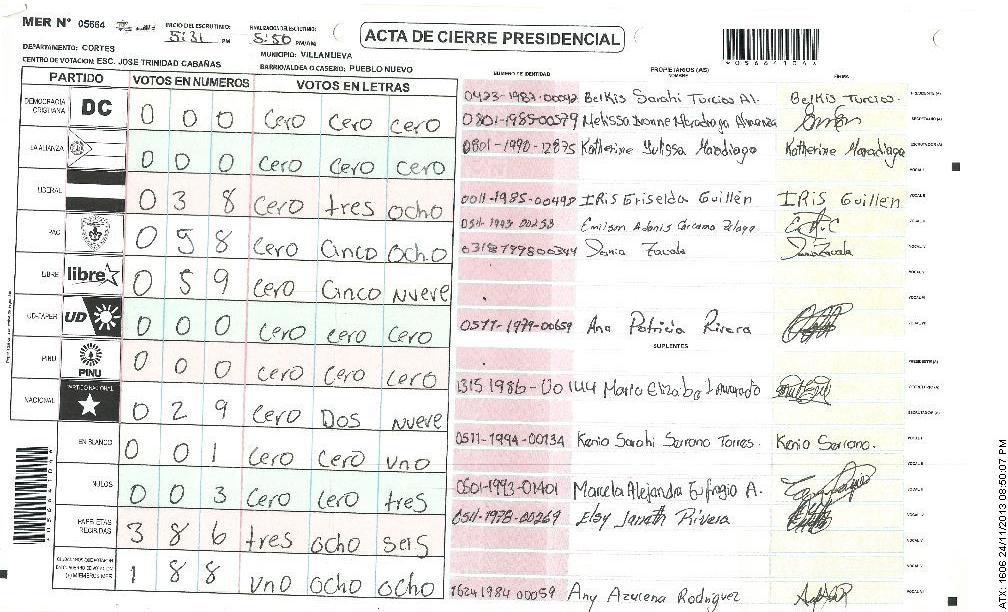 MER N° 05664
INICIO DEL ESCRUTINIO:
5:31 PM
FINALIZACION DEL ESCRUTINIO:
5:50 PM/AM
ACTA DE CIERRE PRESIDENCIAL
DEPARTAMENTO: CORTES
MUNICIPIO: VILLANUEVA
CENTRO DE VOTACION: ESC. JOSE TRINIDAD CABAÑAS
BARRIO/ALDEA O CASERIO: PUEBLO NUEVO
PARTIDO VOTOS EN NUMEROS VOTOS EN LETRAS
NUMERO DE IDENTIDAD PROPIETARIOS (AS) NOMBRE FIRMA
DEMOCRACIA CRISTIANA DC 0 0 0 Cero Cero cero
LA ALIANZA 0 0 0 Cero Cero Cero
LIBERAL 0 3 8 Cero tres ocho
PAC 0 58 Cero Cinco Ocho
LIBRE libre 0 5 9 Cero Cinco Nueve
UD-FAPER UD 0 0 0 Cero cero Cero
PINU PINU 0 0 0 Cero Cero Cero
NACIONAL PARTIDO NACIONAL 0 2 9 Cero Dos Nueve
EN BLANCO 0 0 1 Cero Cero uno
NULOS 0 0 3 Cero Cero tres
PAPELETAS RECIBIDAS 3 8 6 tres ocho seis
1 8 8 uno ocho ocho
0423-1982-00042 Belkis Sarahi Turcios Al. Belkis Turcios.
0801-1985-00579 Melissa Ivonne Maradiaga Almanza
0801-1990-12875 Katherine Yulissa Maradiaga Katherine Maradiaga
0011-1985-00498 IRis Griselda Guillén IRis Guillen
0511-1993-00253 Emilson Adonis Carcamo Zelaya
0318799800344 Sonia Zavala Sonia Zavala
0511-1979-00659 Ana Patricia Rivera
SUPLENTES
1315 1986-00144 Maria Elizabe
0511-1994-00134 Kenia Sarahi Serrano Torres. Kenia Serrano.
0501-1993-01401 Marcela Alejandra Eufragio A.
0511-1978-00269 Elsy Janeth Rivera
1624 1984 00059 Any Azucena Rodriguez
1606 24/11/2013 08:50:07 PM